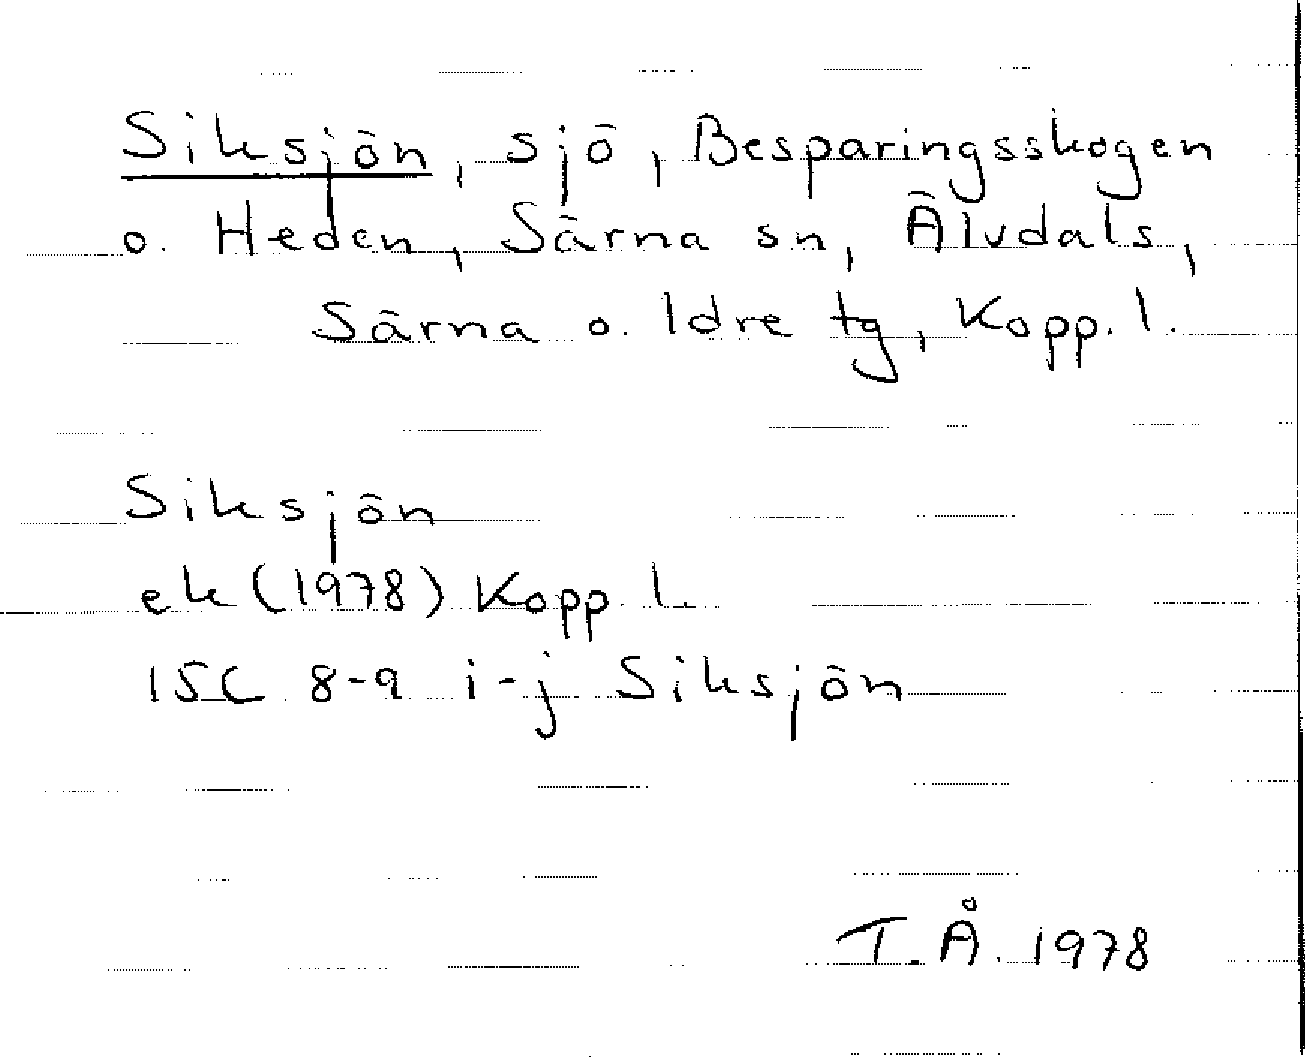 Siksjön, sjö, Besparingsskogen
o. Heden, Särna sn, Älvdals,
Särna o. Idre tg, Kopp. l.
Siksjön
ek (1978) Kopp l.
15C 8-9 i-j Siksjön
T.Å. 1978